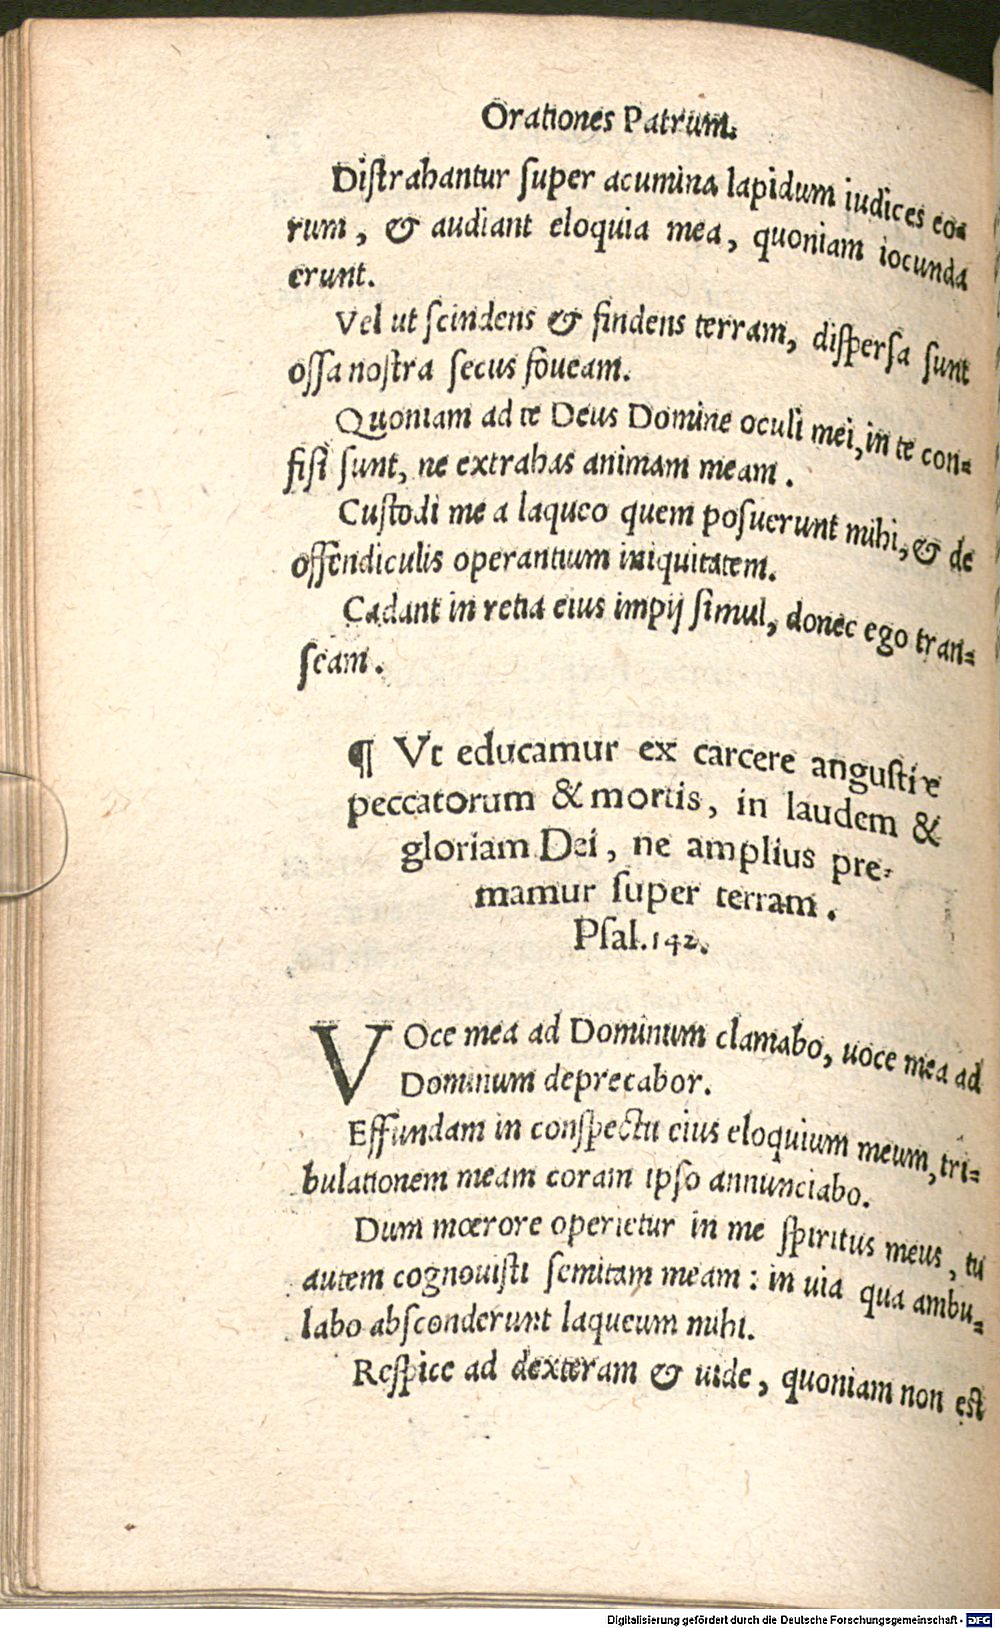 Orationes Patrum.
Diſtrahantur ſuper acumina lapidum iudices eo⸗
rum, & audiant eloquia mea, quoniam iocunda
erunt.
Vel ut ſcindens & findens terram, diſperſa ſunt
oſſa noſtra ſecus foueam.
Quoniam ad te Deus Domine oculi mei, in te con⸗
fiſi ſunt, ne extrahas animam meam.
Cuſtodi me a laqueo quem poſuerunt mihi, & de
offendiculis operantium iniquitatem.
Cadant in retia eius impij ſimul, donec ego tran⸗
ſeam.
¶ Vt educamur ex carcere anguſtiæ
peccatorum & mortis, in laudem &
gloriam Dei, ne amplius pre⸗
mamur ſuper terram.
Pſal. 142.
VOce mea ad Dominum clamabo, uoce mea ad
Dominum deprecabor.
Effundam in conſpectu eius eloquium meum, tri⸗
bulationem meam coram ipſo annunciabo.
Dum mœrore operietur in me ſpiritus meus, tu
autem cognouiſti ſemitam meam: in uia qua ambu⸗
labo abſconderunt laqueum mihi.
Reſpice ad dexteram & uide, quoniam non eſt
Digitalisierung gefördert durch die Deutsche Forschungsgemeinschaft - DFG